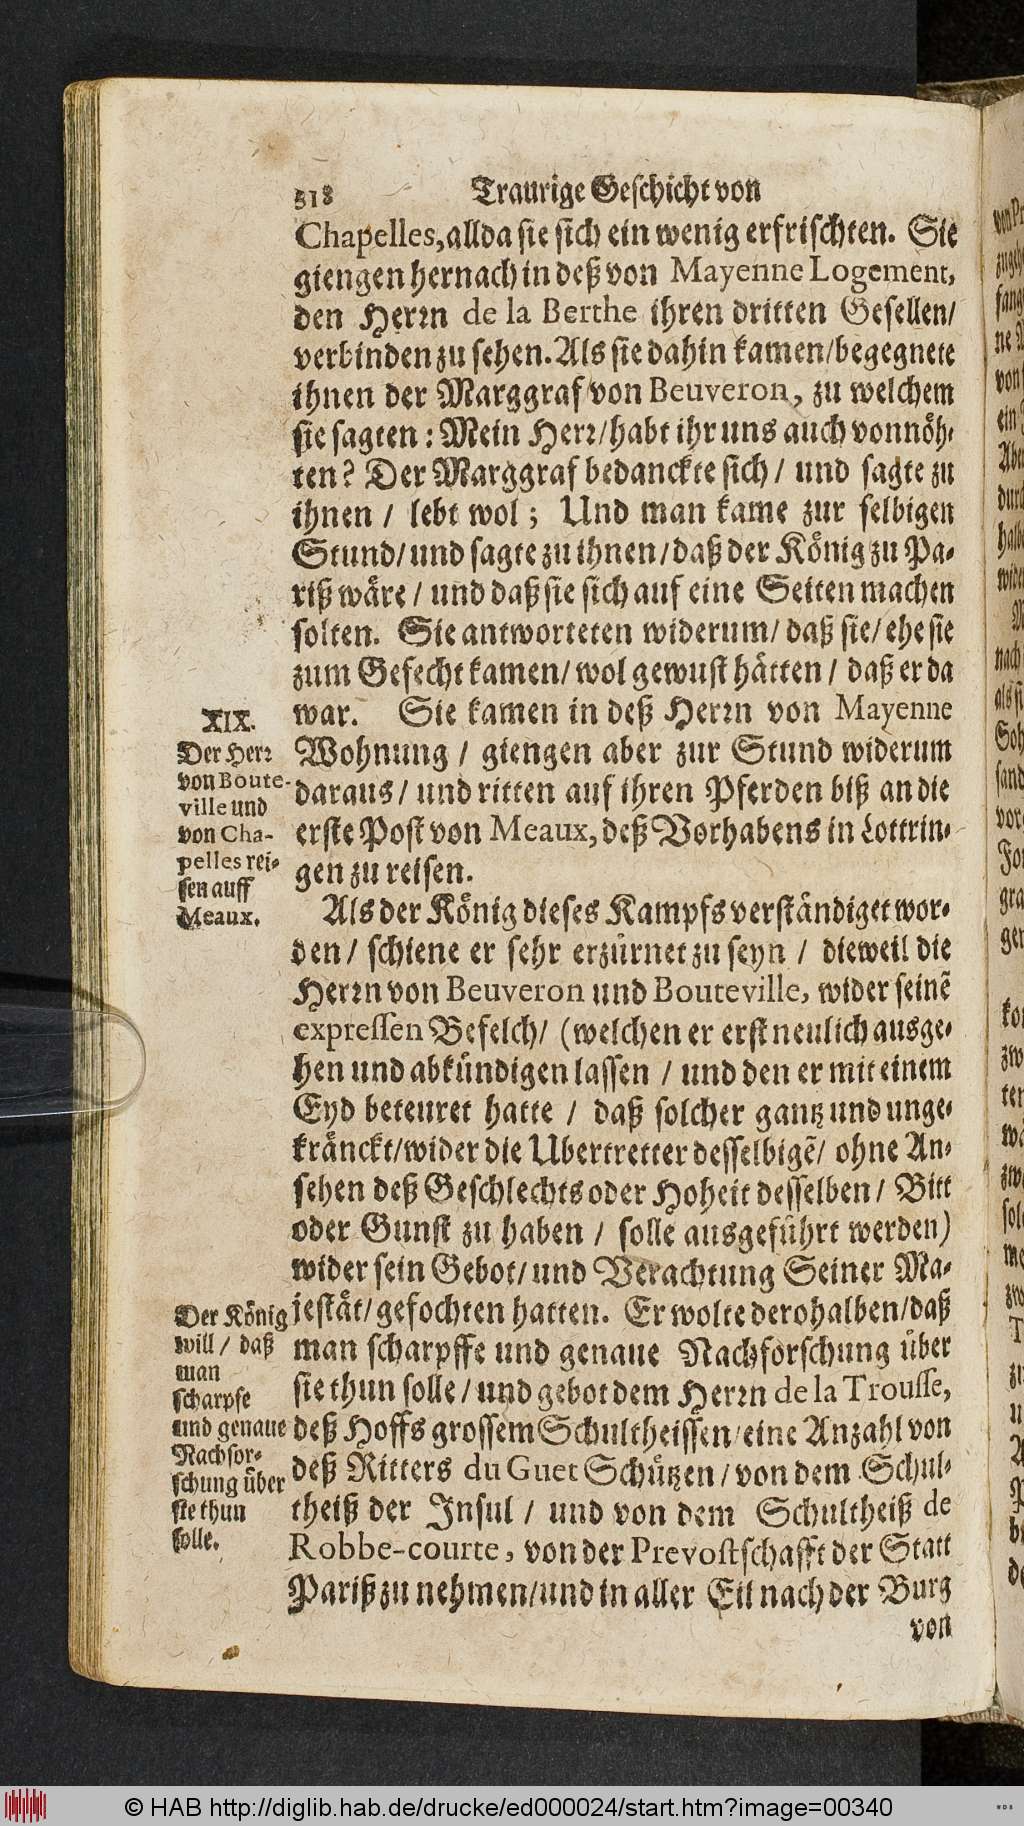 318 Traurige Geschicht von
Chapelles, allda sie sich ein wenig erfrischten. Sie
giengen hernach in deß von Mayenne Logement,
den Herꝛn de la Berthe ihren dritten Gesellen/
verbinden zu sehen. Als sie dahin kamen/ begegnete
ihnen der Marggraf von Beuveron, zu welchem
sie sagten: Mein Herꝛ/ habt ihr uns auch vonnöh-
ten? Der Marggraf bedanckte sich/ und sagte zu
ihnen/ lebt wol; Und man kame zur selbigen
Stund/ und sagte zu ihnen/ daß der König zu Pa-
riß wäre/ und daß sie sich auf eine Seiten machen
solten. Sie antworteten widerum/ daß sie/ ehe sie
zum Gefecht kamen/ wol gewust hätten/ daß er da
war. Sie kamen in deß Herꝛn von Mayenne
Wohnung/ giengen aber zur Stund widerum
daraus/ und ritten auf ihren Pferden biß an die
erste Post von Meaux, deß Vorhabens in Lottrin-
gen zu reisen.
XIX.
Der Herꝛ
von Boute-
ville und
von Cha-
pelles rei-
sen auff
Meaux.
Als der König dieses Kampfs verständiget wor-
den/ schiene er sehr erzürnet zu seyn/ dieweil die
Herꝛn von Beuveron und Bouteville, wider seinẽ
expressen Befelch/ (welchen er erst neulich ausge-
hen und abkündigen lassen/ und den er mit einem
Eyd beteuret hatte/ daß solcher gantz und unge-
kränckt/ wider die Ubertretter desselbigẽ/ ohne An-
sehen deß Geschlechts oder Hoheit desselben/ Bitt
oder Gunst zu haben/ solle ausgeführt werden)
wider sein Gebot/ und Verachtung Seiner Ma-
jestät/ gefochten hatten. Er wolte derohalben/ daß
man scharpffe und genaue Nachforschung über
sie thun solle/ und gebot dem Herꝛn de la Trousse,
deß Hoffs grossem Schultheissen/ eine Anzahl von
deß Ritters du Guet Schützen/ von dem Schul-
theiß der Insul/ und von dem Schultheiß de
Robbe-courte, von der Prevostschafft der Statt
Pariß zu nehmen/ und in aller Eil nach der Burg
von
Der König
will/ daß
man
scharpfe
und genaue
Nachfor-
schung über
sie thun
solle.
© HAB http://diglib.hab.de/drucke/ed000024/start.htm?image=00340